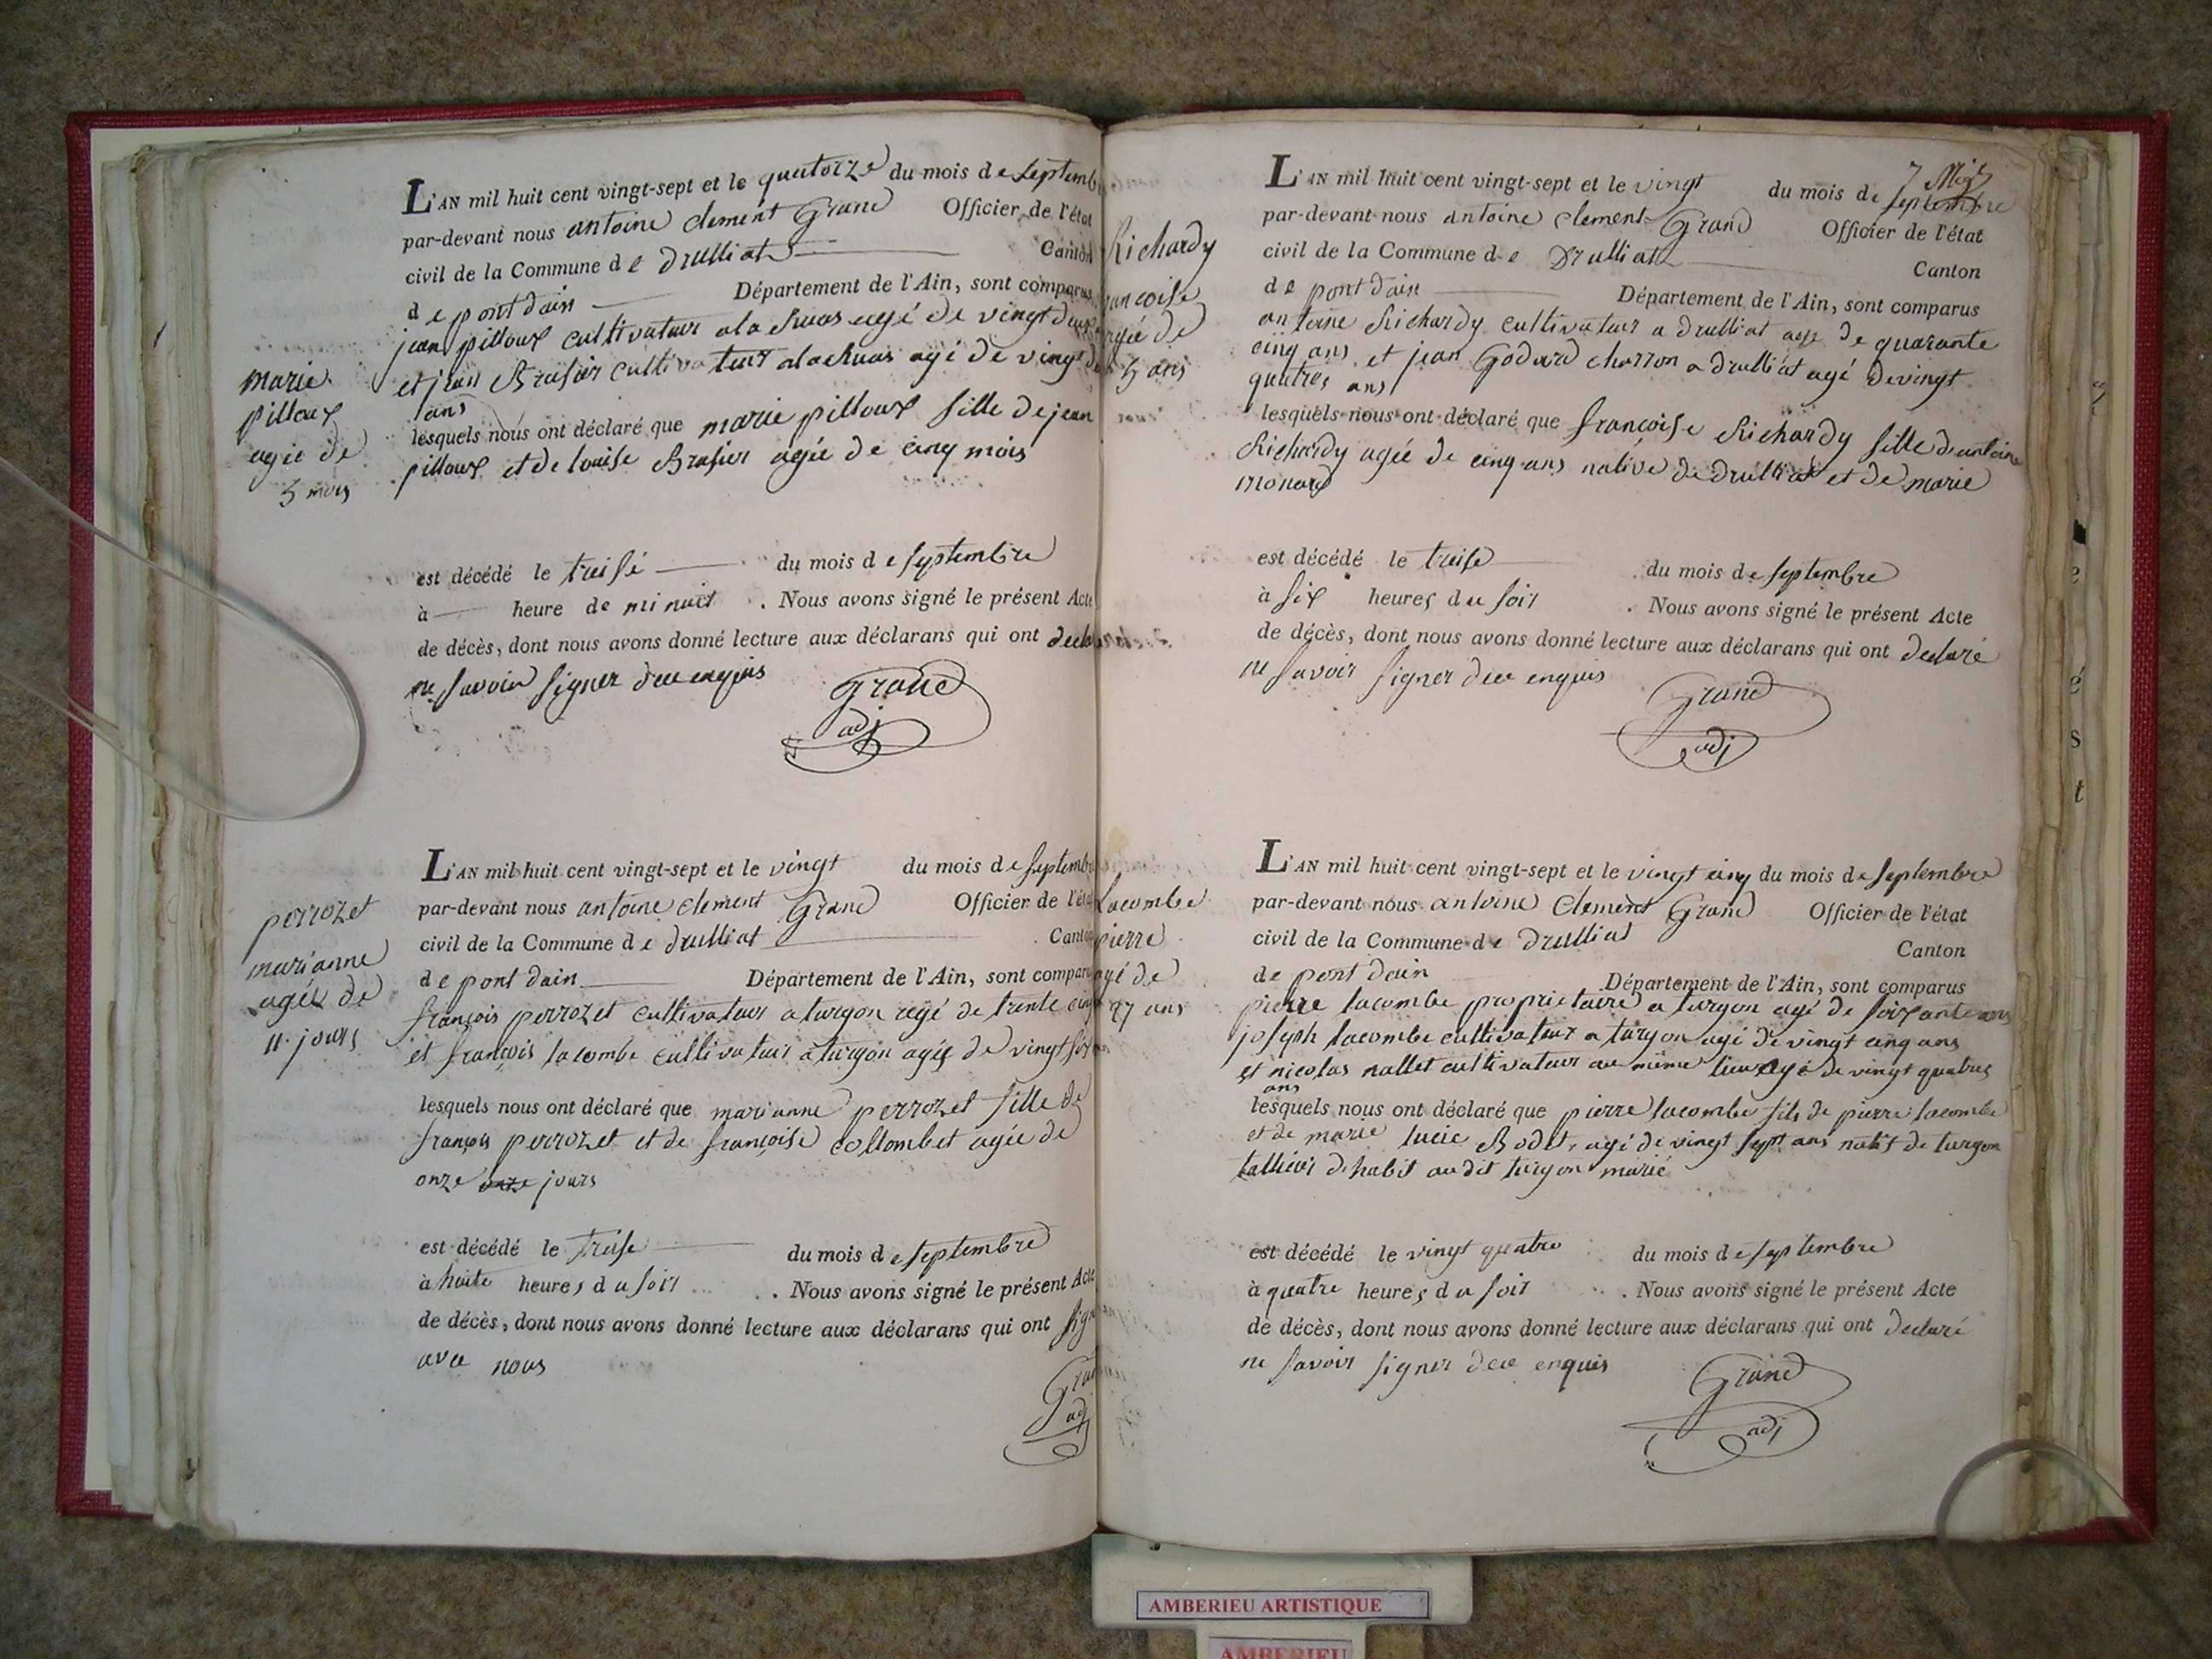 L'AN mil huit cent vingt-sept et le quatorze du mois de septemb
par-devant nous antoine clement Grand Officier de l'état
civil de la Commune de druilliat Canton
de pont dain Département de l'Ain, sont comparus
jean pilloux cultivateur a la agé de vingt deux
et jean Brasier cultivateur agé de vingt
ans
lesquels nous ont déclaré que marie pilloux fille de jean
pilloux et de louise Brasier agée de cinq mois
marie
pilloux
agée de
5 mois
est décédé le treise du mois de septembre
à heure de minuit . Nous avons signé le présent Acte
de décès, dont nous avons donné lecture aux déclarans qui ont
ne savoir signer de ce enquis
Grand
adj
L'AN mil huit cent vingt-sept et le vingt du mois de septemb
par-devant nous antoine clement Grand Officier de l'état
civil de la Commune de druilliat Canton
de pont dain Département de l'Ain, sont compar
françois perrozet cultivateur a turgon agé de trente cinq
et françois lacombe cultivateur a turgon agé de vingt
lesquels nous ont déclaré que marianne perrozet fille de
françois perrozet et de françoise collombet agée de
onze jours
perrozet
marianne
agée de
11 jours
est décédé le treise du mois de septembre
à huite heures du soir . Nous avons signé le présent Acte
de décès, dont nous avons donné lecture aux déclarans qui ont sign
avec nous
Gran
adj
L'AN mil huit cent vingt-sept et le vingt du mois de septembre
par-devant nous antoine clement Grand Officier de l'état
civil de la Commune de Druilliat Canton
de pont dain Département de l'Ain, sont comparus
antoine Richardy cultivateur a druilliat agé de quarante
cinq ans et jean Godard charron a druilliat agé de vingt
quatres ans
lesquels nous ont déclaré que françoise Richardy fille d'antoine
Richardy agée de cinq ans native de druilliat et de marie
monard
Richardy
ancoise
agée de
5 ans
est décédé le treise du mois de septembre
à six heures du soir . Nous avons signé le présent Acte
de décès, dont nous avons donné lecture aux déclarans qui ont declaré
ne savoir signer de ce enquis
Grand
adj
L'AN mil huit cent vingt-sept et le vingt cinq du mois de septembre
par-devant nous antoine Clement Grand Officier de l'état
civil de la Commune de druilliat Canton
de pont dain Département de l'Ain, sont comparus
pierre lacombe proprietaire a turgon agé de soixante ans
joseph lacombe cultivateur a turgon agé de vingt cinq ans
et nicolas nallet cultivateur au même lieu agé de vingt quatres
ans
lesquels nous ont déclaré que pierre lacombe fils de pierre lacombe
et de marie lucie Bodet agé de vingt sept ans natif de turgon
tallieur d'habit audit turgon marié
lacombe
pierre
agé de
27 ans
est décédé le vingt quatre du mois de septembre
à quatre heures du soir . Nous avons signé le présent Acte
de décès, dont nous avons donné lecture aux déclarans qui ont declaré
ne savoir signer de ce enquis
Grand
adj
AMBERIEU ARTISTIQUE
AMBERIEU